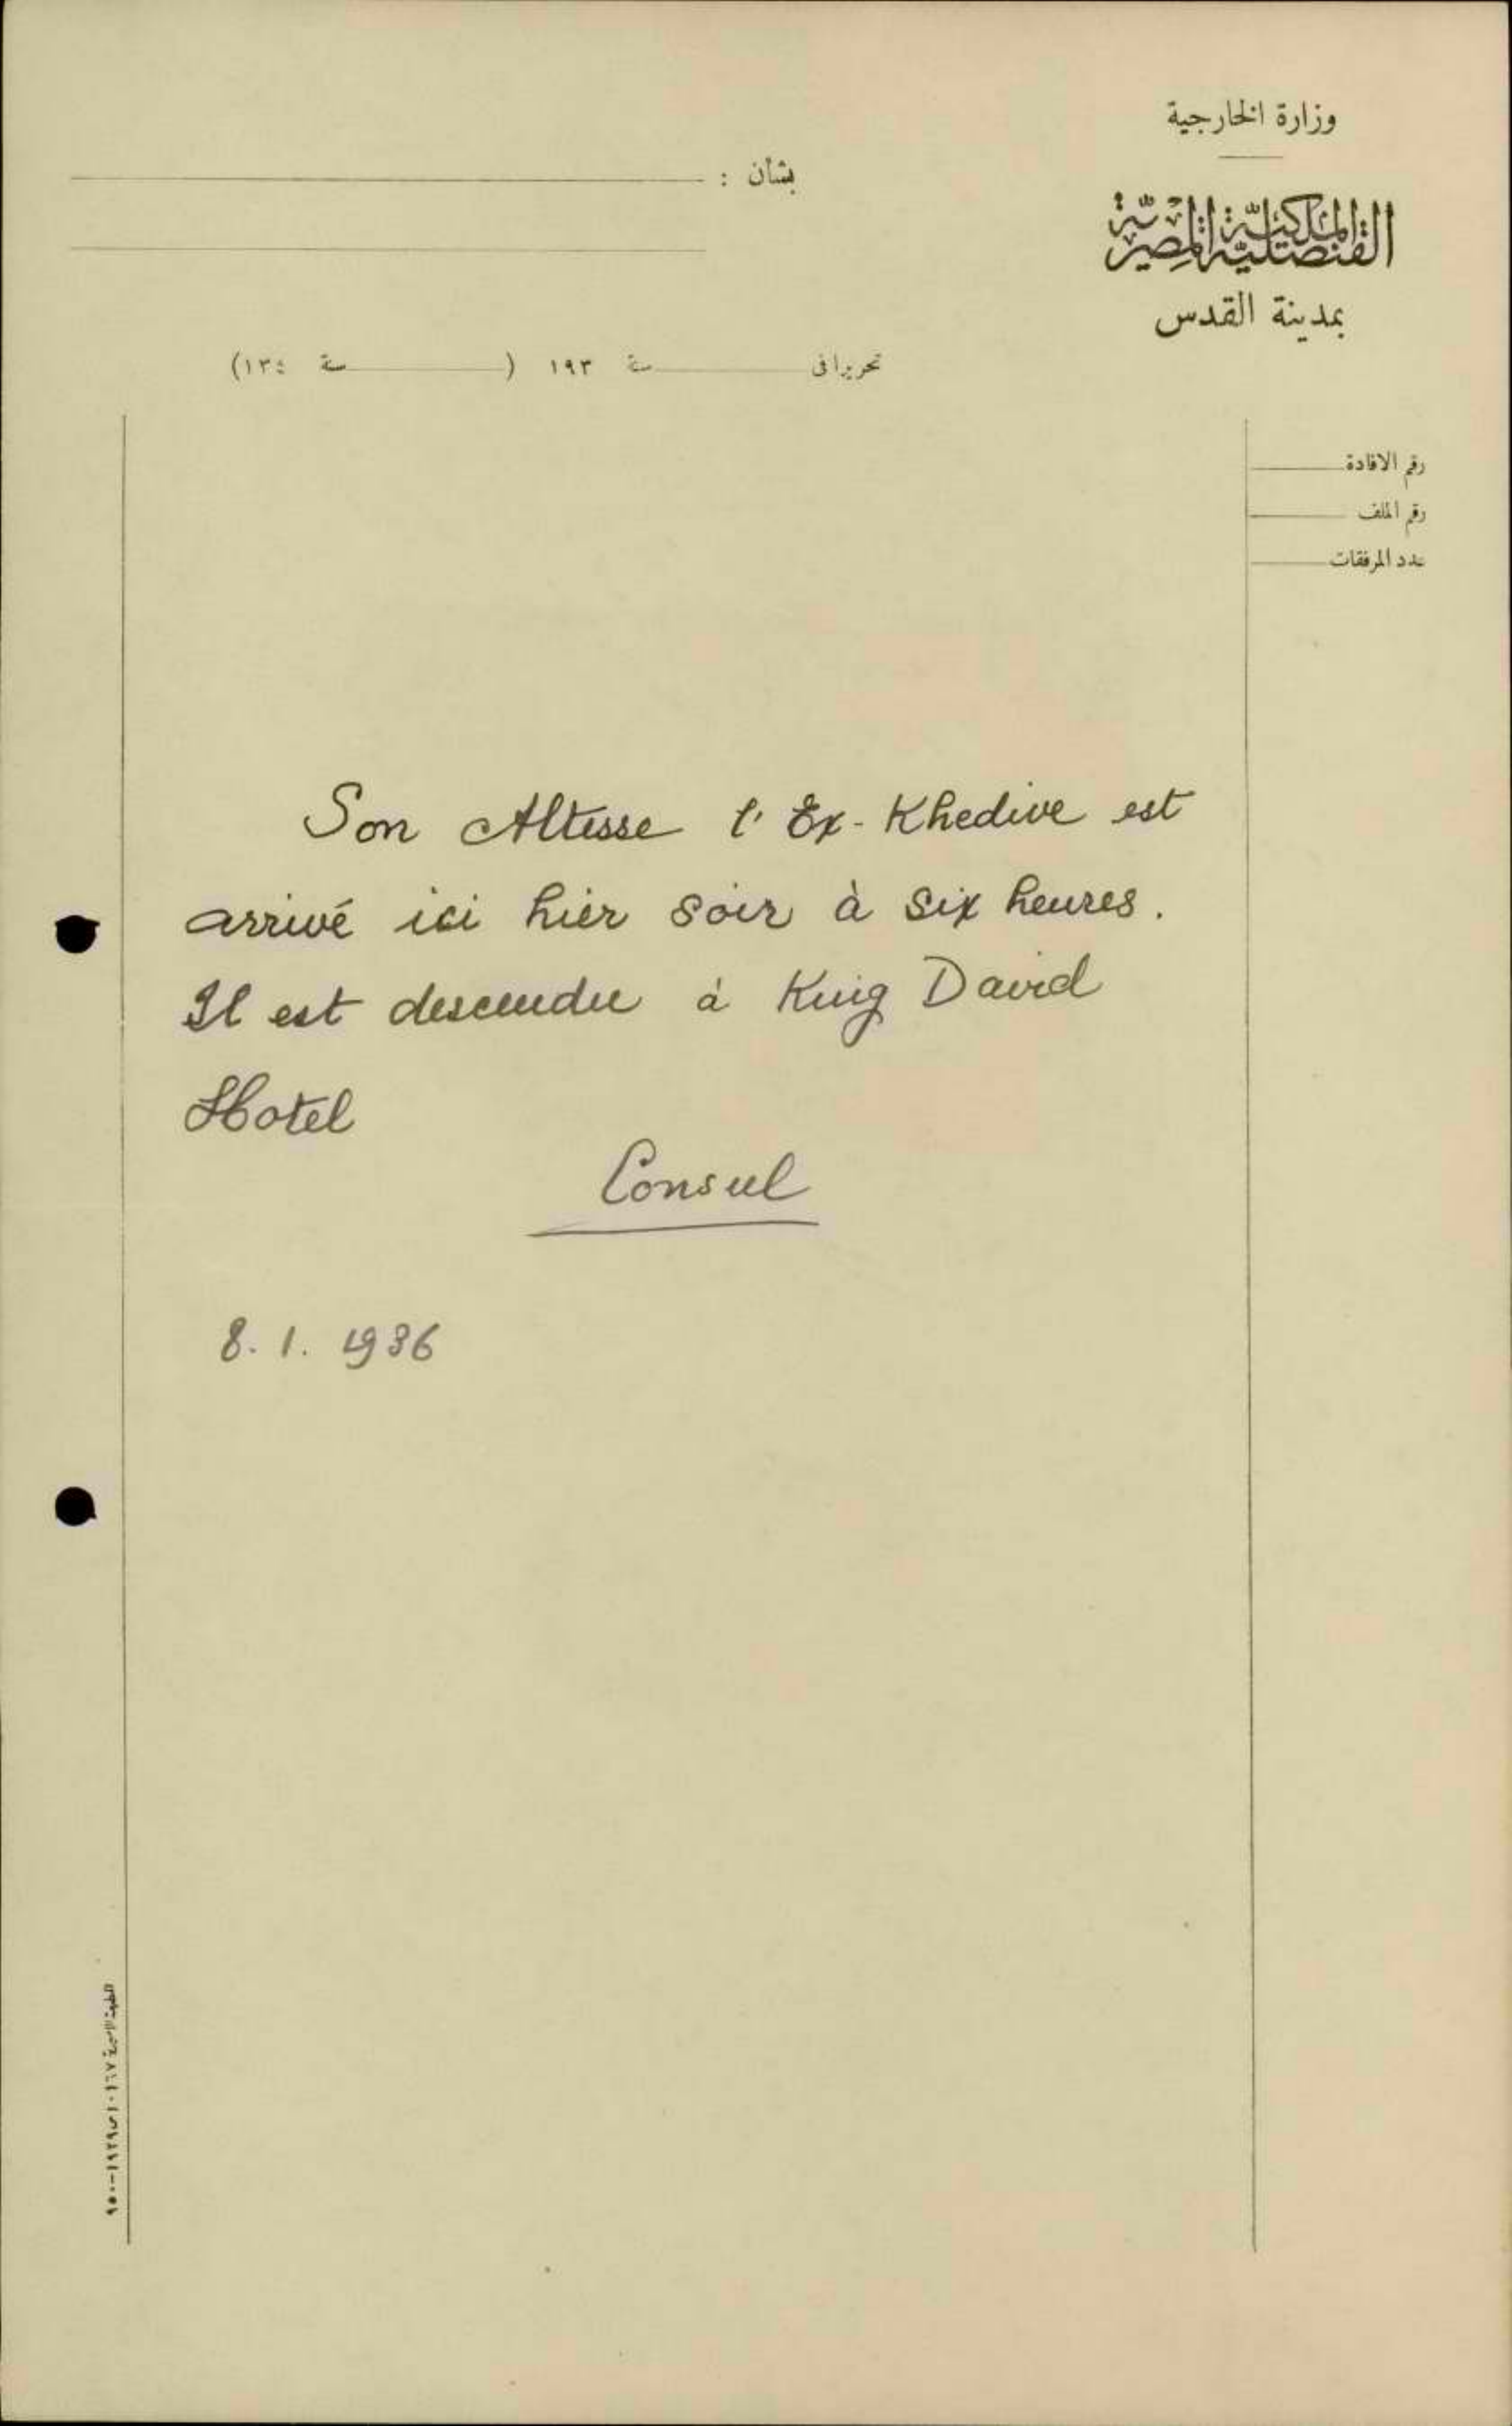 وزارة الخارجية
القنصلية الملكية المصرية
بمدينة القدس
بشأن :
تحريرا فى سنة ١٩٣ ( سنة ١٣٥)
رقم الافادة
رقم الملف
عدد المرفقات
Son Altesse l'Ex-Khedive est
arrivé ici hier soir à six heures.
Il est descendu à King David
Hotel
Consul
8. 1. 1936